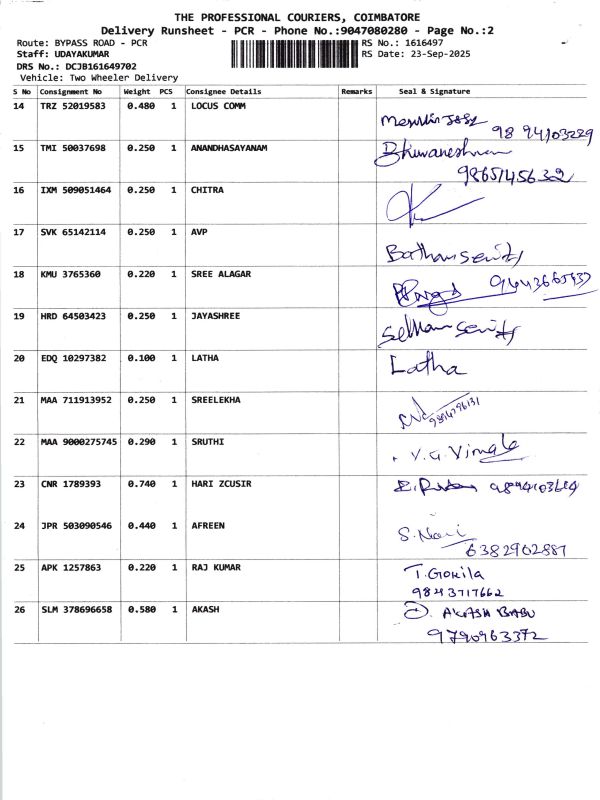 THE PROFESSIONAL COURIERS, COIMBATORE
Delivery Runsheet - PCR - Phone No.:9047080280 - Page No.:2
Route: BYPASS ROAD - PCR RS No.: 1616497
Staff: UDAYAKUMAR RS Date: 23-Sep-2025
DRS No.: DCJB161649702
Vehicle: Two Wheeler Delivery
S No Consignment No Weight PCS Consignee Details Remarks Seal & Signature
14 TRZ 52019583 0.480 1 LOCUS COMM
15 TMI 50037698 0.250 1 ANANDHASAYANAM Bhuwaneshwari
9865145632
16 IXM 509051464 0.250 1 CHITRA
17 SVK 65142114 0.250 1 AVP
18 KMU 3765360 0.220 1 SREE ALAGAR
19 HRD 64503423 0.250 1 JAYASHREE
20 EDQ 10297382 0.100 1 LATHA Latha
21 MAA 711913952 0.250 1 SREELEKHA
22 MAA 9000275745 0.290 1 SRUTHI V.G. Vimala
23 CNR 1789393 0.740 1 HARI ZCUSIR
24 JPR 503090546 0.440 1 AFREEN
6382902887
25 APK 1257863 0.220 1 RAJ KUMAR T. Gokila
9843717662
26 SLM 378696658 0.580 1 AKASH AKASH BABU
9790963372